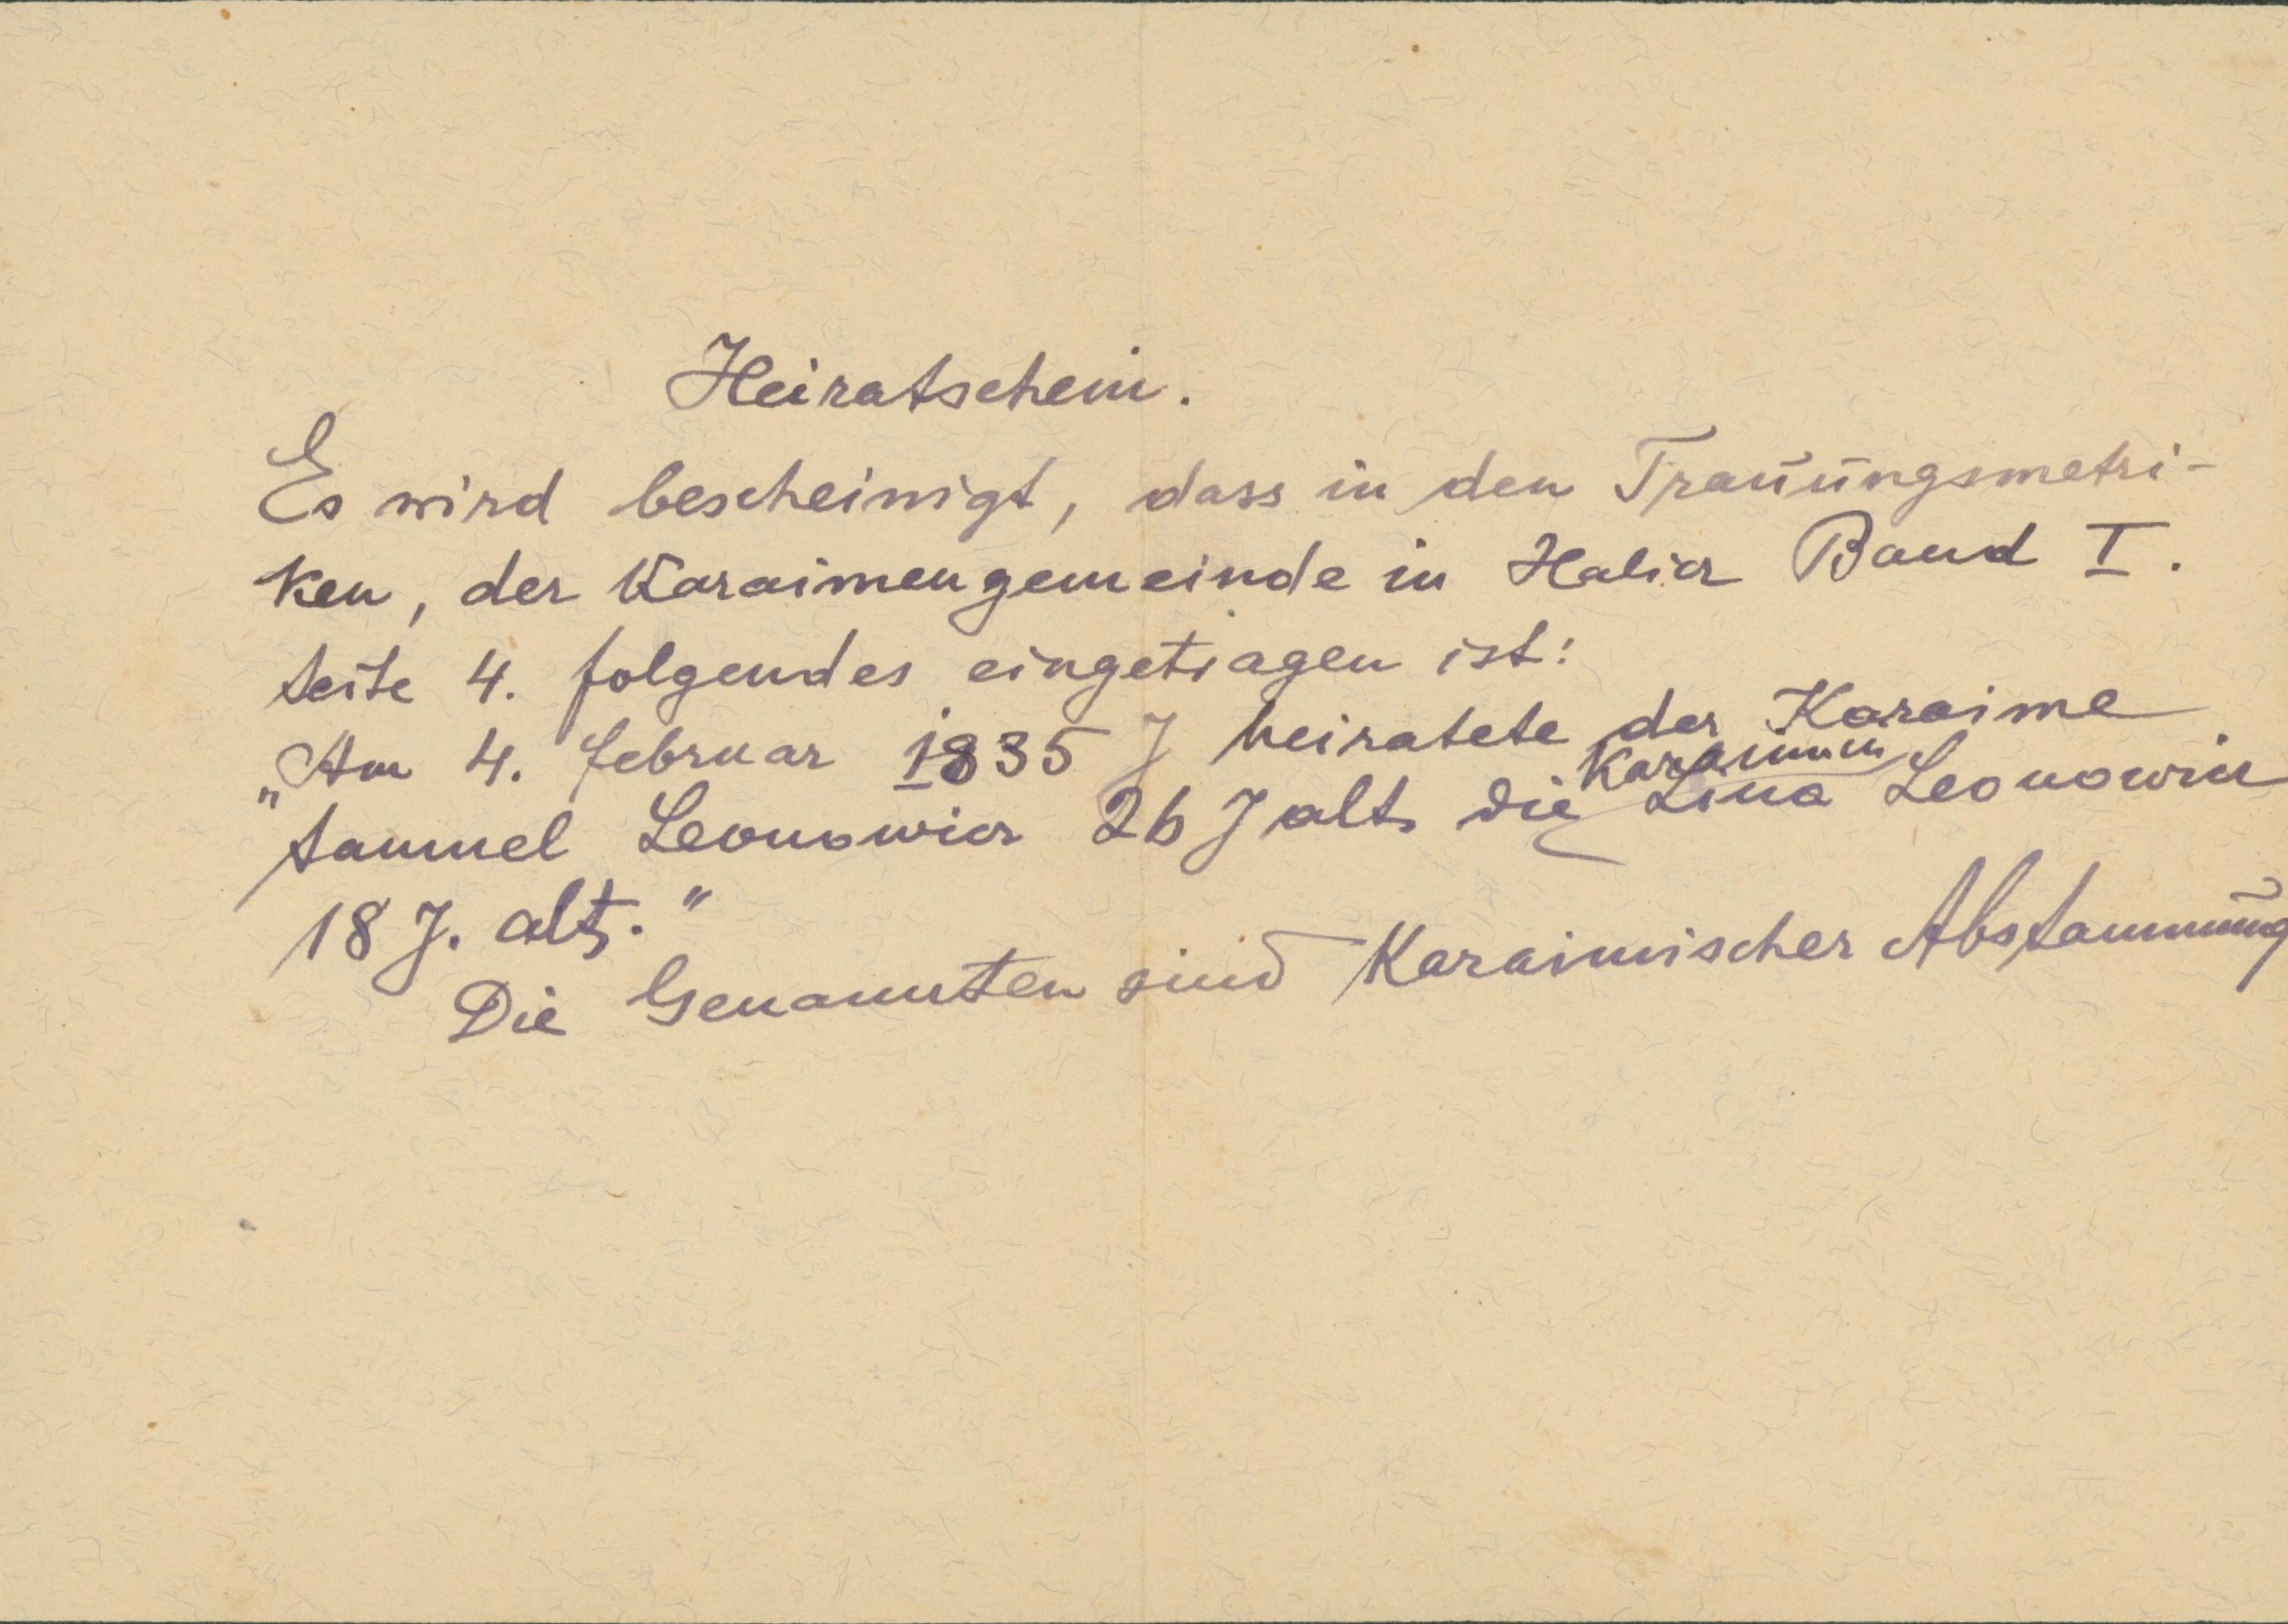 Heiratschein.
Es wird bescheinigt, dass in den Trauungsmatri-
ken, der Karaimengemeinde in Halicz Band I.
Seite 4. folgendes eingetragen ist:
„Am 4. Februar 1835 J heiratete der Karaime
Karaimin
Samuel Leonowicz 26 J alt, die Lina Leonowicz
18 J. alt."
Die Genannten sind Karaimischer Abstammung